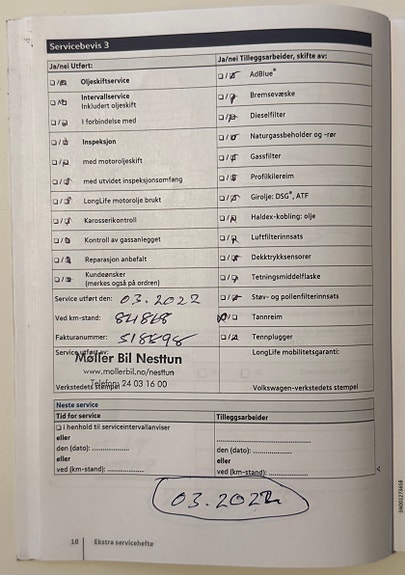 Servicebevis 3
Ja/nei Utført:
Ja/nei Tilleggsarbeider, skifte av:
Oljeskiftservice
AdBlue®
Intervallservice
Inkludert oljeskift
Bremsevæske
I forbindelse med
Dieselfilter
Inspeksjon
Naturgassbeholder og -rør
med motoroljeskift
Gassfilter
med utvidet inspeksjonsomfang
Profilkilereim
LongLife motorolje brukt
Girolje: DSG®, ATF
Karosserikontroll
Haldex-kobling: olje
Kontroll av gassanlegget
Luftfilterinnsats
Reparasjon anbefalt
Dekktrykksensorer
Kundeønsker
(merkes også på ordren)
Tetningsmiddelflaske
Service utført den: 03.2022
Støv- og pollenfilterinnsats
Ved km-stand: 84868
Tannreim
Fakturanummer: 518898
Tennplugger
Service utført av:
LongLife mobilitetsgaranti:
Møller Bil Nesttun
www.mollerbil.no/nesttun
Telefon 24 03 16 00
Verkstedets stempel
Volkswagen-verkstedets stempel
Neste service
Tid for service
Tilleggsarbeider
i henhold til serviceintervallanviser
eller
den (dato):
den (dato):
eller
eller
ved (km-stand):
ved (km-stand):
03.2022
18 Ekstra servicehefte